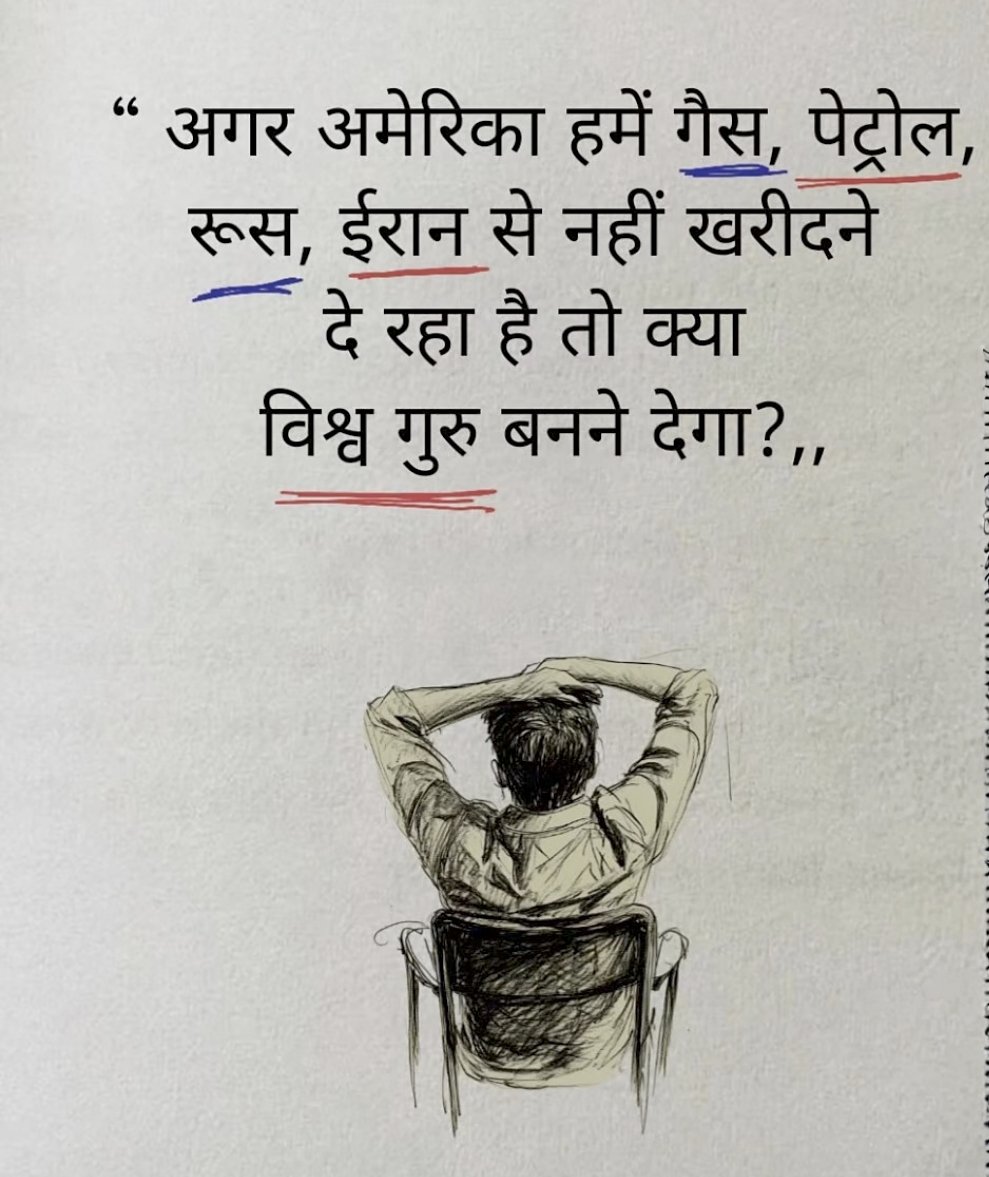 “ अगर अमेरिका हमें गैस, पेट्रोल,
रूस, ईरान से नहीं खरीदने
दे रहा है तो क्या
विश्व गुरु बनने देगा?,,